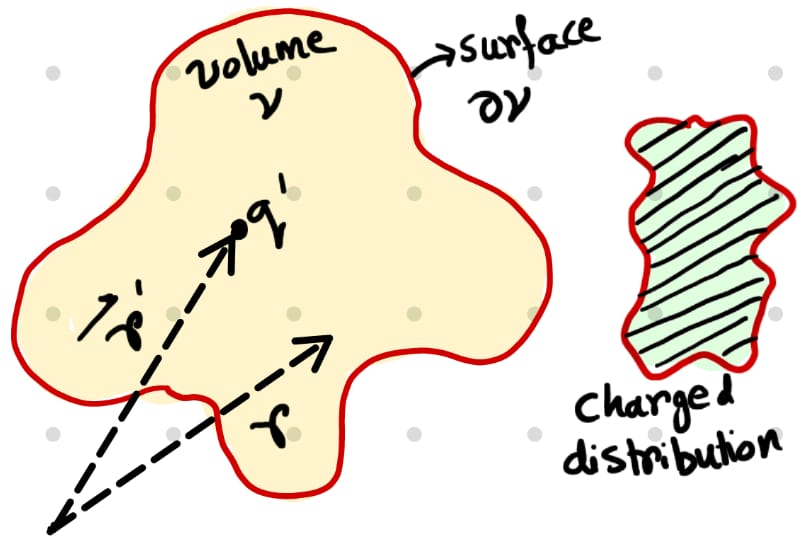 volume
v
surface
∂v
q'
r'
r
Charged
distribution